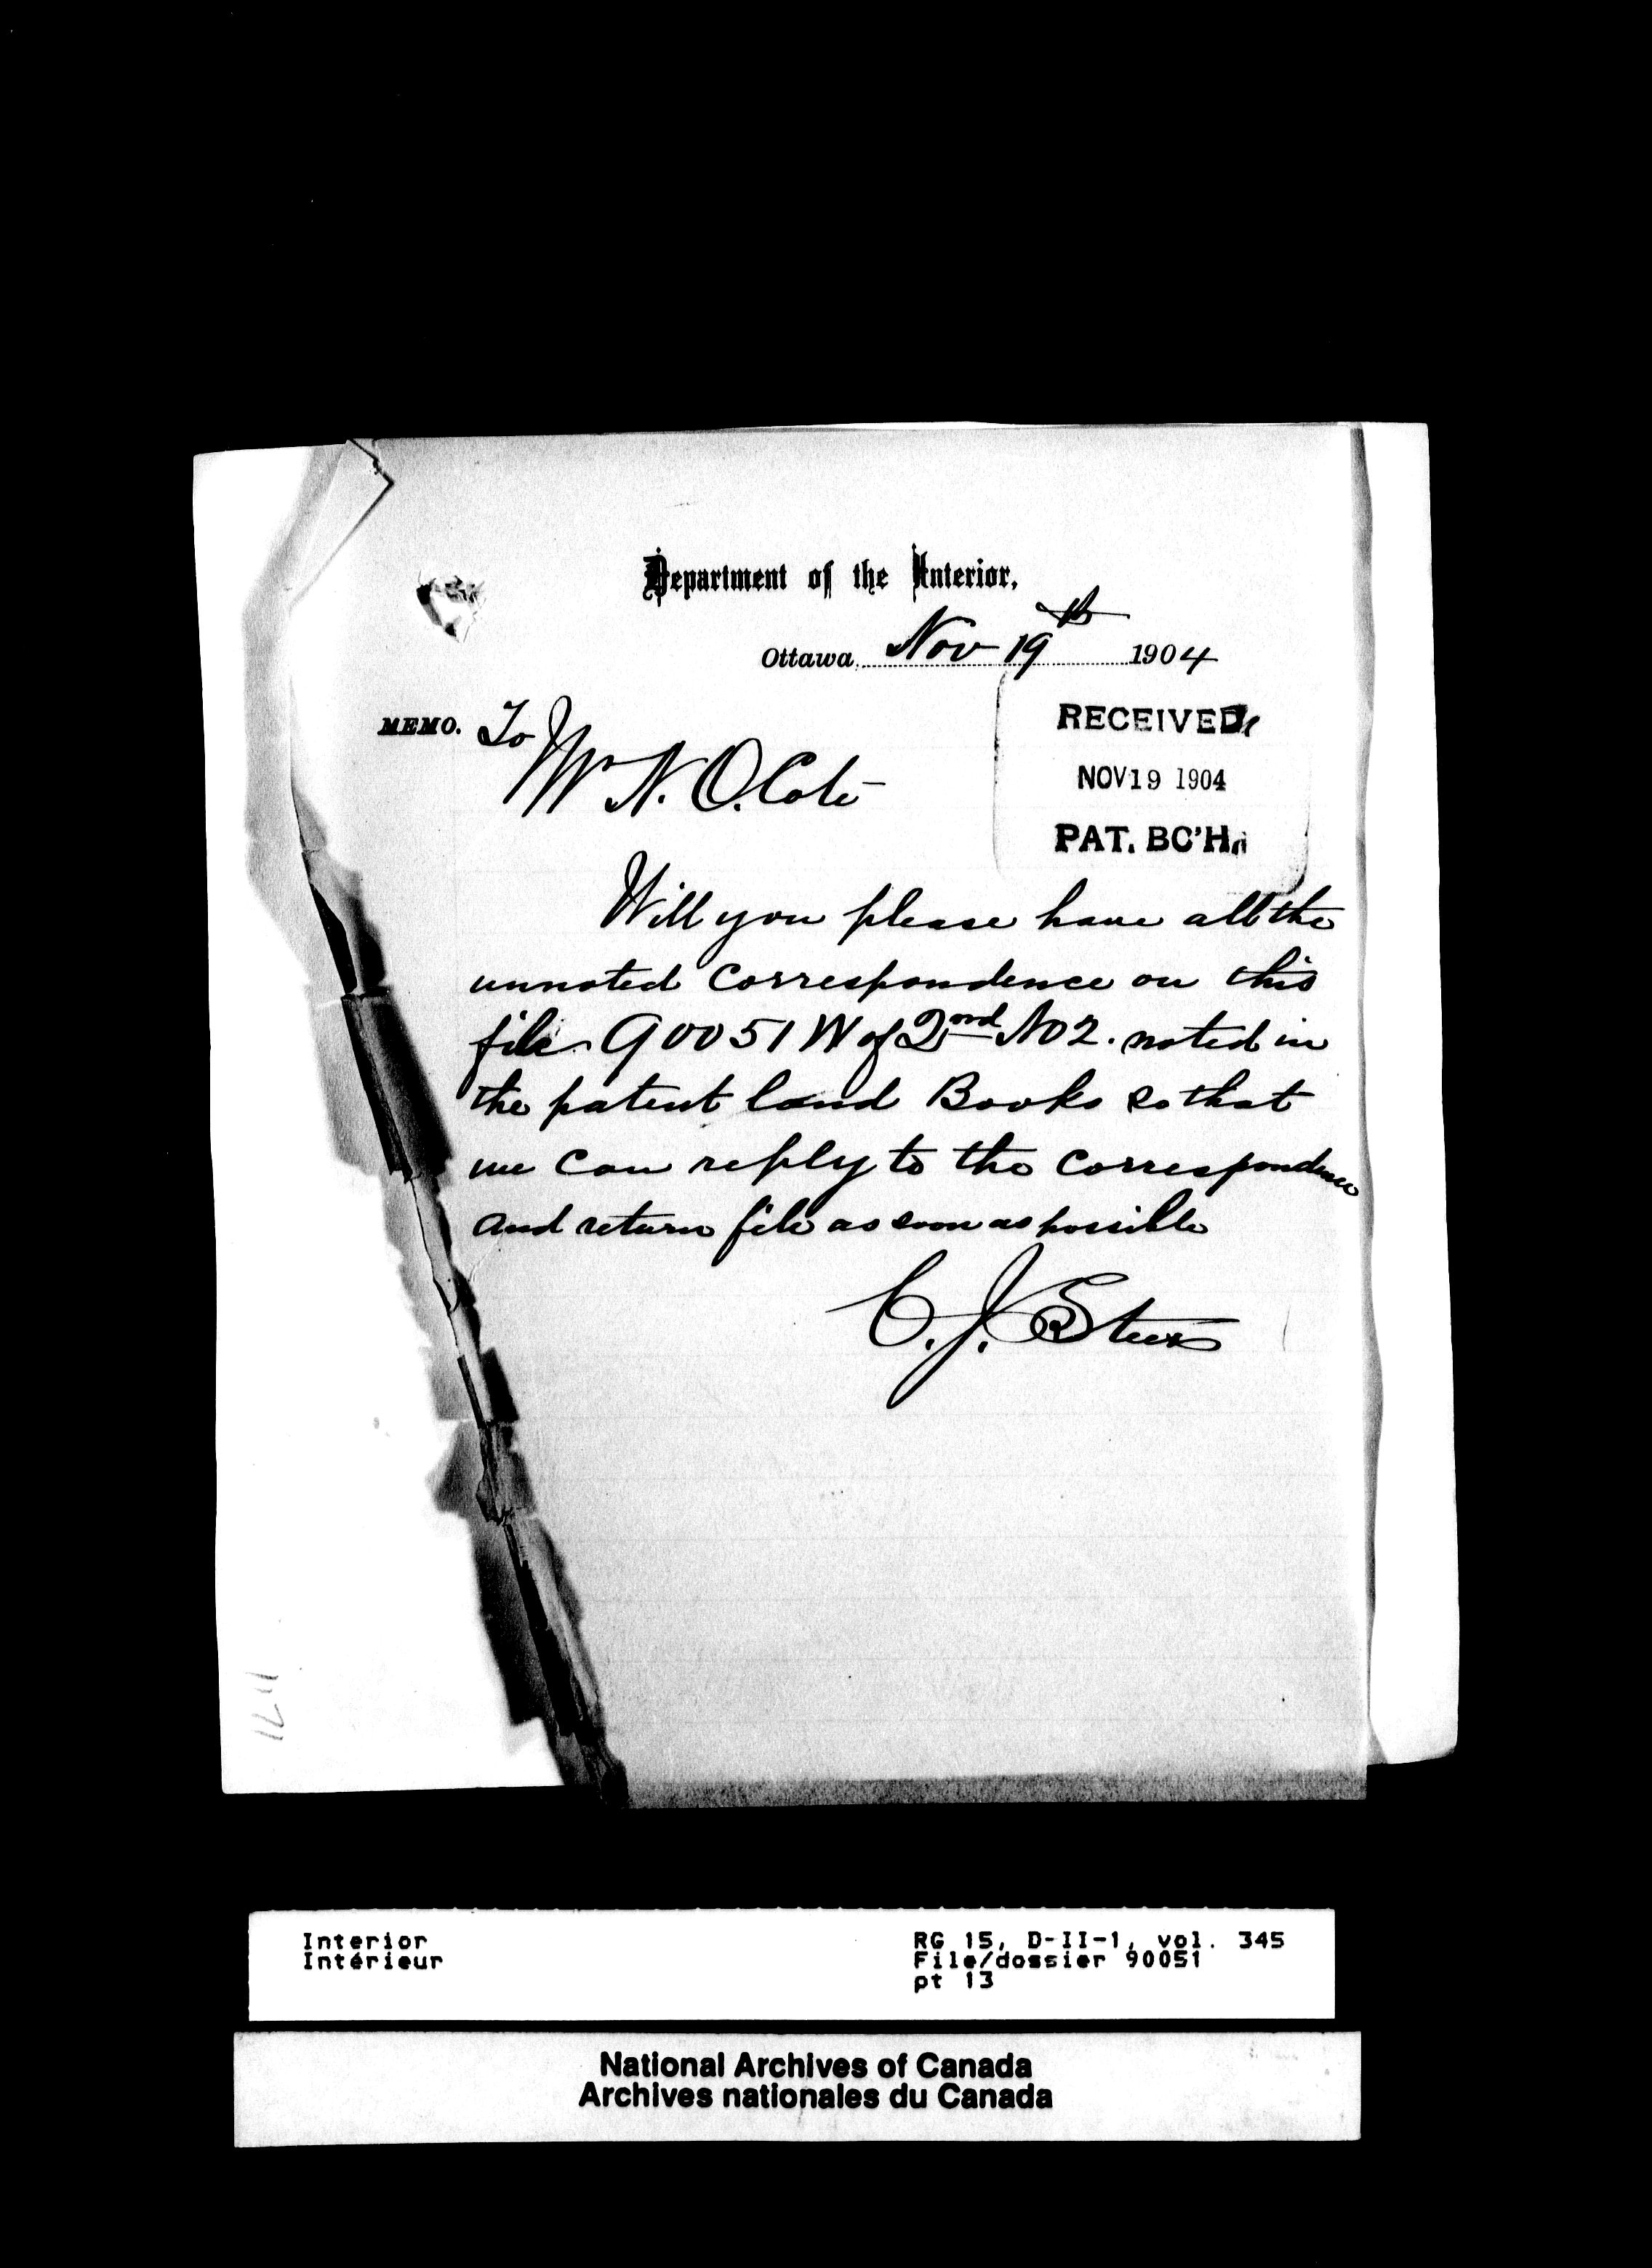 Department of the Interior,
Ottawa Nov 19th 1904
MEMO. To
Mr N. O. Coté
RECEIVED
NOV 19 1904
PAT. BC'H.
Will you please have all the
unnoted correspondence on this
file 90051 W of 2nd No 2. noted in
the patent land Books so that
we can reply to the correspondence
and return file as soon as possible
C. J. Steers
Interior
Intérieur
RG 15, D-II-1, vol. 345
File/dossier 90051
pt 13
National Archives of Canada
Archives nationales du Canada